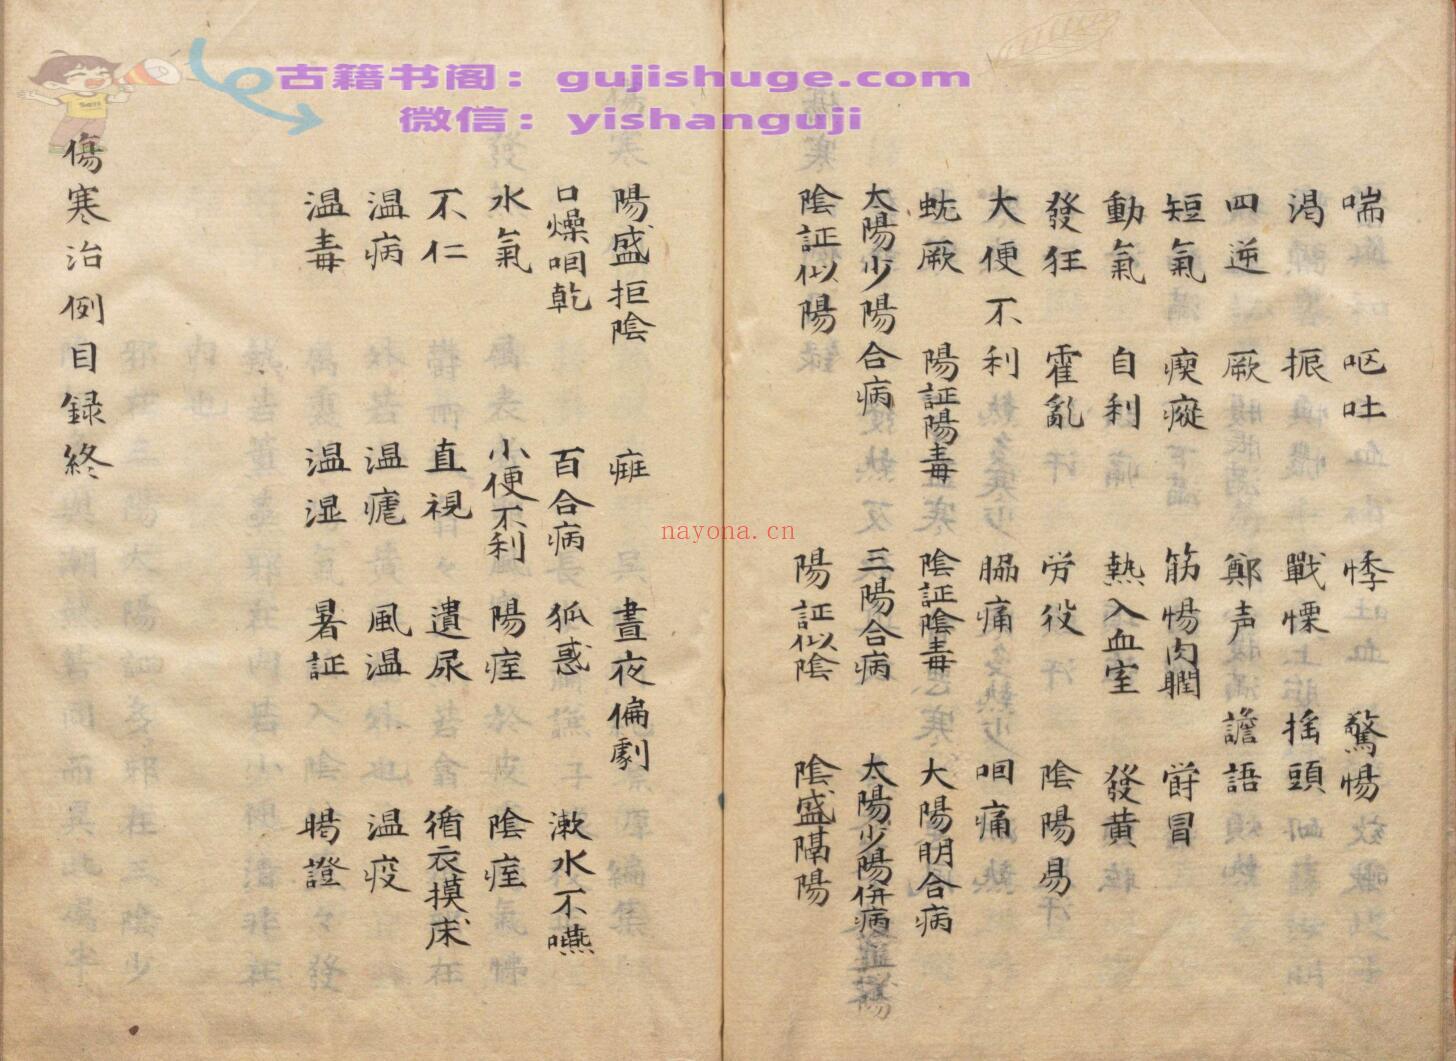 古籍书阁：gujishuge.com
微信：yishanguji
喘 呕吐 悸 驚惕
渇 振 戰慄 揺頭
四逆 厥 鄭声 譫語
短氣 瘈瘲 筋惕肉瞤 欝冒
動氣 自利 熱入血室 發黄
發狂 霍亂 労役 陰陽易
大便不利 脇痛 咽痛
蚘厥 陽証陽毒 陰証陰毒 太陽陽明合病
太陽少陽合病 三陽合病 太陽少陽併病
陰証似陽 陽証似陰 陰盛隔陽
陽盛拒陰 疰 晝夜偏劇
口燥咽乾 百合病 狐惑 漱水不嚥
水氣 小便不利 陽痓 陰痓
不仁 直視 遺尿 循衣摸床
温病 温瘧 風温 温疫
温毒 温湿 暑証 暍證
傷寒治例目録終
nayona.cn